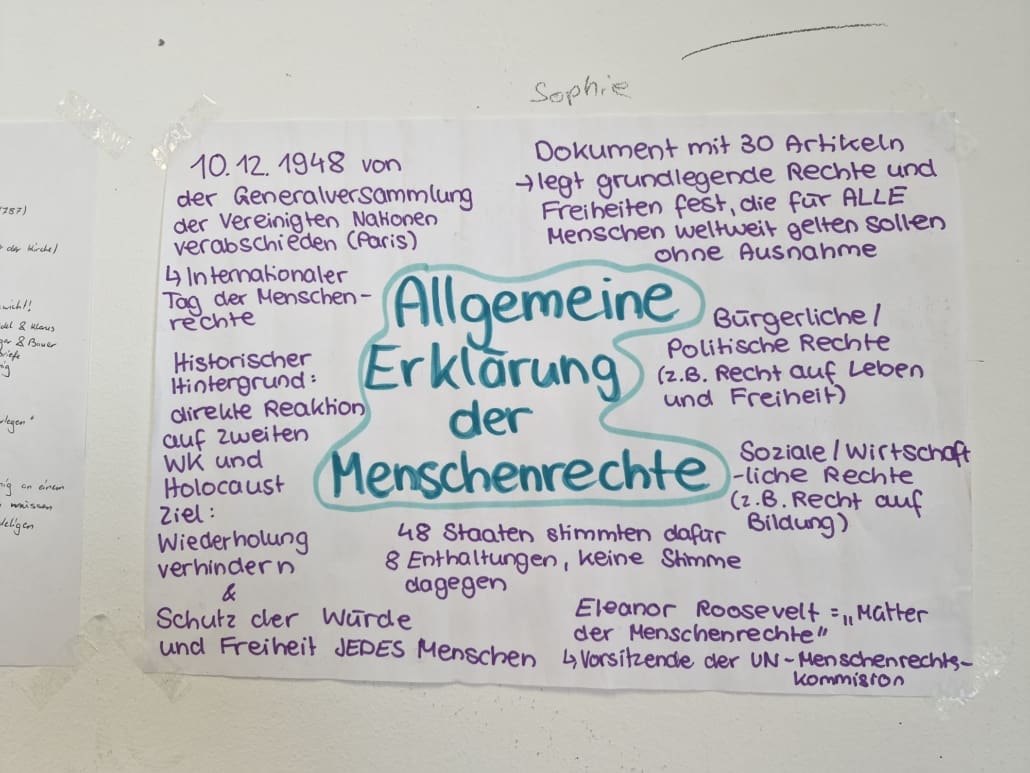 Sophie
10.12.1948 von
der Generalversammlung
der Vereinigten Nationen
verabschieden (Paris)
↳ Internationaler
Tag der Menschen-
rechte
Historischer
Hintergrund:
direkte Reaktion
auf zweiten
WK und
Holocaust
Ziel:
Wiederholung
verhindern
&
Schutz der Würde
und Freiheit JEDES Menschen
Allgemeine
Erklärung
der
Menschenrechte
Dokument mit 30 Artikeln
→ legt grundlegende Rechte und
Freiheiten fest, die für ALLE
Menschen weltweit gelten sollen
ohne Ausnahme
Bürgerliche/
Politische Rechte
(z.B. Recht auf Leben
und Freiheit)
Soziale/Wirtschaft
-liche Rechte
(z.B. Recht auf
Bildung)
48 Staaten stimmten dafür
8 Enthaltungen, keine Stimme
dagegen
Eleanor Roosevelt = „Mutter
der Menschenrechte"
↳ Vorsitzende der UN-Menschenrechts-
kommision
1787)
der Kirche/
& Klaus
& Bauer
an einem
müssen